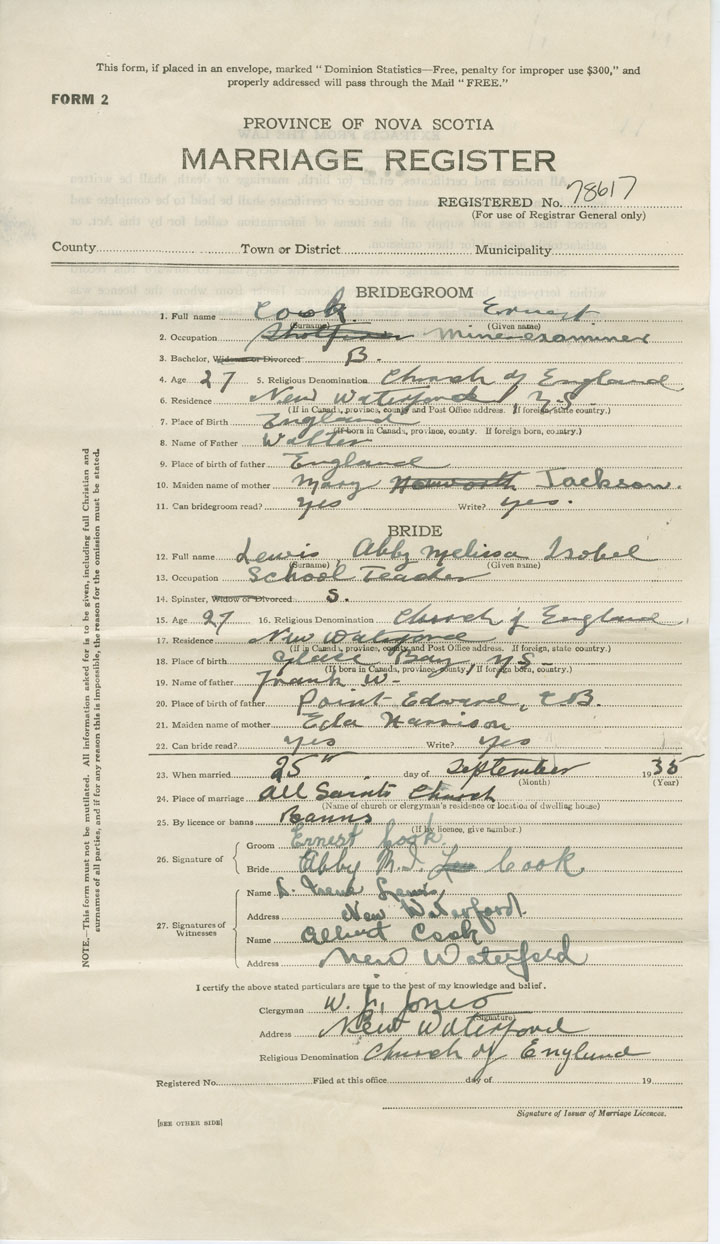 This form, if placed in an envelope, marked "Dominion Statistics—Free, penalty for improper use $300," and
properly addressed will pass through the Mail "FREE."
FORM 2
PROVINCE OF NOVA SCOTIA
MARRIAGE REGISTER
REGISTERED No. 78617
(For use of Registrar General only)
County Town or District Municipality
BRIDEGROOM
1. Full name Cook Ernest
(Surname) (Given name)
2. Occupation Shotfirer Mine examiner
3. Bachelor, Widower or Divorced B.
4. Age 27 5. Religious Denomination Church of England
6. Residence New Waterford N.S.
(If in Canada, province, county and Post Office address. If foreign, state country.)
7. Place of Birth England
(If born in Canada, province, county. If foreign born, country.)
8. Name of Father Walter
9. Place of birth of father England
10. Maiden name of mother Mary Howorth Jackson.
11. Can bridegroom read? yes Write? yes.
BRIDE
12. Full name Lewis Abby Melissa Isobel
(Surname) (Given name)
13. Occupation School Teacher
14. Spinster, Widow or Divorced S.
15. Age 27 16. Religious Denomination Church of England.
17. Residence New Waterford
(If in Canada, province, county and Post Office address. If foreign, state country.)
18. Place of birth Glace Bay, N.S.
(If born in Canada, province, county. If foreign born, country.)
19. Name of father Frank W.
20. Place of birth of father Point Edward, C.B.
21. Maiden name of mother Harrison
22. Can bride read? yes Write? yes
23. When married 25th day of September 1935
(Month) (Year)
24. Place of marriage All Saints Church
(Name of church or clergyman's residence or location of dwelling house)
25. By licence or banns Banns
(If by licence, give number.)
26. Signature of
Groom Ernest Cook.
Bride Abby M. I. Cook
27. Signatures of Witnesses
Name Lewis
Address New Waterford.
Name Albert Cook
Address New Waterford
I certify the above stated particulars are true to the best of my knowledge and belief.
Clergyman W. J. Jones
(Signature)
Address New Waterford
Religious Denomination Church of England
Registered No. Filed at this office day of 19
Signature of Issuer of Marriage Licences.
[SEE OTHER SIDE]
NOTE.—This form must not be mutilated. All information asked for is to be given, including full Christian and
surnames of all parties, and if for any reason this is impossible, the reason for the omission must be stated.